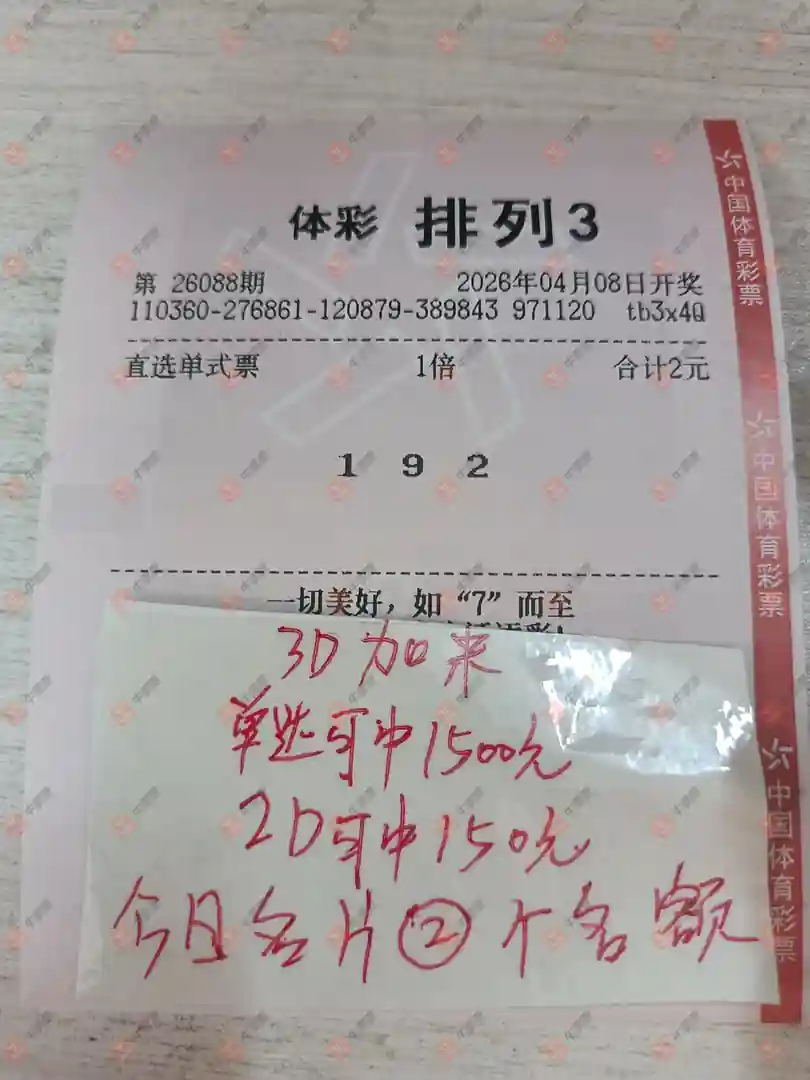 体彩 排列3
第 26088期 2026年04月08日开奖
110360-276861-120879-389843 971120 tb3x4Q
直选单式票 1倍 合计2元
1 9 2
一切美好，如“7”而至
3D加来
单选可中1500元
2D可中150元
今日名片②个名额
中国体育彩票
中国体育彩票
中国体育彩票